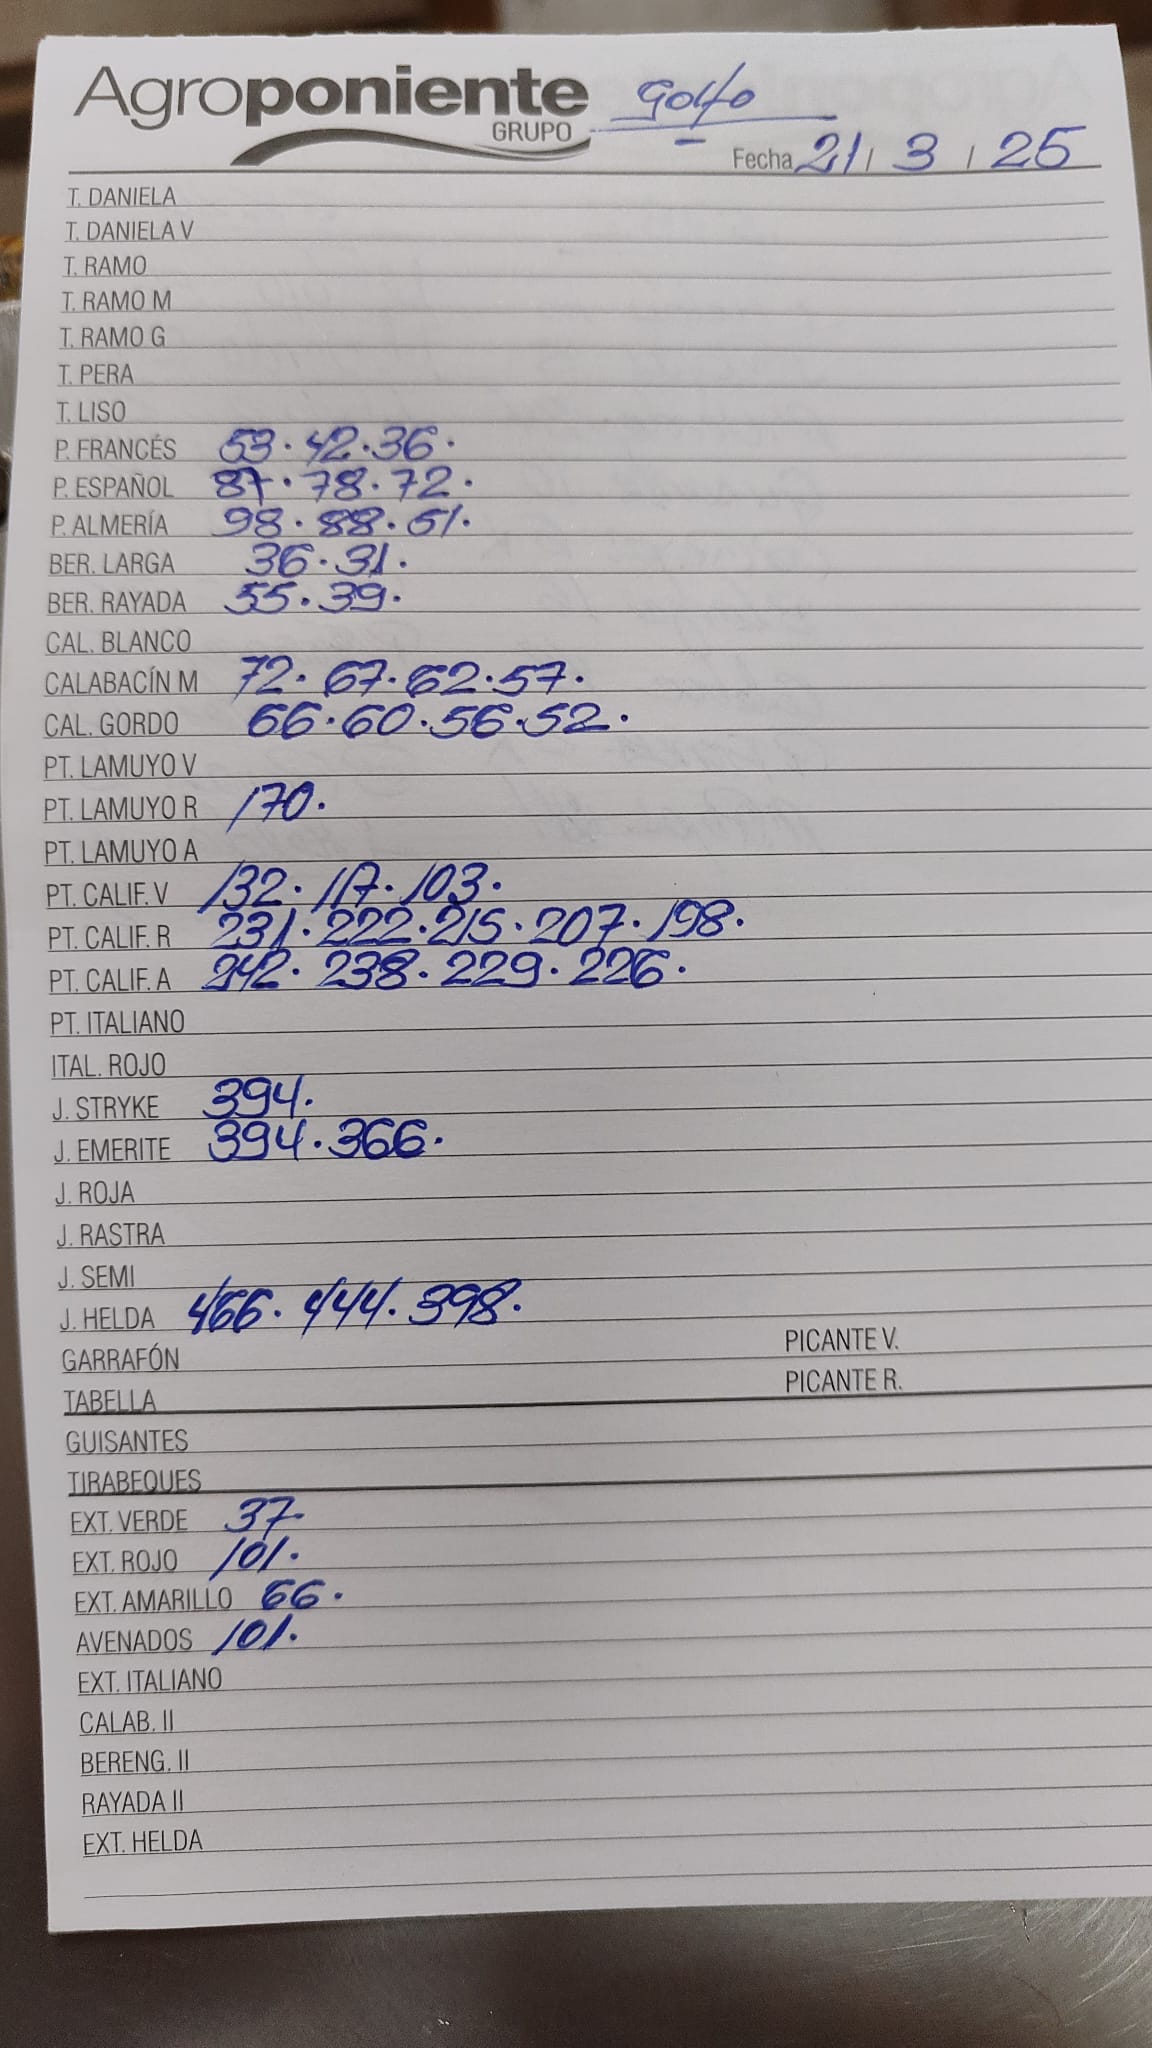 Agroponiente
GRUPO
Golfo
Fecha 21 / 3 / 25
T. DANIELA
T. DANIELA V
T. RAMO
T. RAMO M
T. RAMO G
T. PERA
T. LISO
P. FRANCÉS 53 · 42 · 36 ·
P. ESPAÑOL 87 · 78 · 72 ·
P. ALMERÍA 98 · 88 · 51 ·
BER. LARGA 36 · 31 ·
BER. RAYADA 55 · 39 ·
CAL. BLANCO
CALABACÍN M 72 · 67 · 62 · 57 ·
CAL. GORDO 66 · 60 · 56 · 52 ·
PT. LAMUYO V
PT. LAMUYO R 170 ·
PT. LAMUYO A
PT. CALIF. V 132 · 117 · 103 ·
PT. CALIF. R 231 · 222 · 215 · 207 · 198 ·
PT. CALIF. A 242 · 238 · 229 · 226 ·
PT. ITALIANO
ITAL. ROJO
J. STRYKE 394 ·
J. EMERITE 394 · 366 ·
J. ROJA
J. RASTRA
J. SEMI
J. HELDA 466 · 444 · 398 ·
GARRAFÓN PICANTE V.
TABELLA PICANTE R.
GUISANTES
TIRABEQUES
EXT. VERDE 37 ·
EXT. ROJO 101 ·
EXT. AMARILLO 66 ·
AVENADOS 101 ·
EXT. ITALIANO
CALAB. II
BERENG. II
RAYADA II
EXT. HELDA